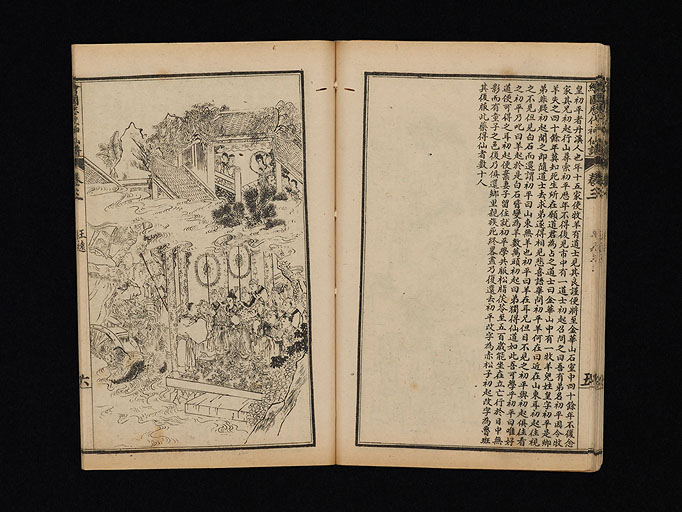 皇初平者丹溪人也年十五家使牧羊有道士見其良謹便將至金華山石室中四十餘年不復念
家其兄初起行山尋索初平歷年不得後見市中有一道士初起召問之曰吾有弟名初平因令牧
羊失之四十餘年莫知死生所在願道君為占之道士曰金華山中有一牧羊兒姓皇字初平是卿
弟非疑初起聞之即隨道士去求弟遂得相見悲喜語畢問初平羊何在曰近在山東耳初起往視
之不見但見白石而還謂初平曰山東無羊也初平曰羊在耳兄但目不見之初平與初起俱往看
之初平乃叱曰羊起於是白石皆變為羊數萬頭初起曰弟獨得仙道如此吾可學乎初平曰唯好
道便可得之耳初起便棄妻子留住就初平學共服松脂茯苓至五百歲能坐在立亡行於日中無
影而有童子之色後乃俱還鄉里親族死終畧盡乃復還去初平改字為赤松子初起改字為魯班
其後服此藥得仙者數十人
王遠
六